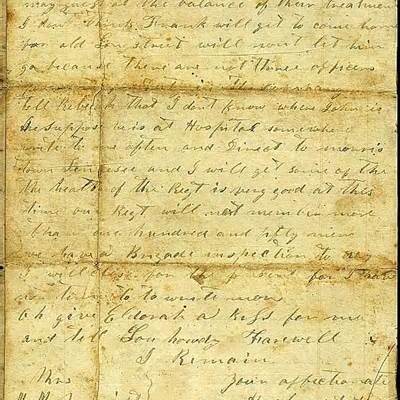 may guess at the balance of their treatment
I dont think Frank will get to come home
for old Longstreet will not let him
go because there are not three officers
in the company
tell Rebecah that I dont know where John is
I suppose he is at Hospital somewhere
write to me often and Direct to morris
town Tennessee and I will get some of the
the health of the Regt is very good at this
time our Regt will not member more
than one hundred and fifty men
we have a Brigade inspection to day
I will close for the present for I have
no to write more
Oh give Eldorah a kiss for me
and tell Lou howdy Farewell
I Remain
Mrs your affectionate